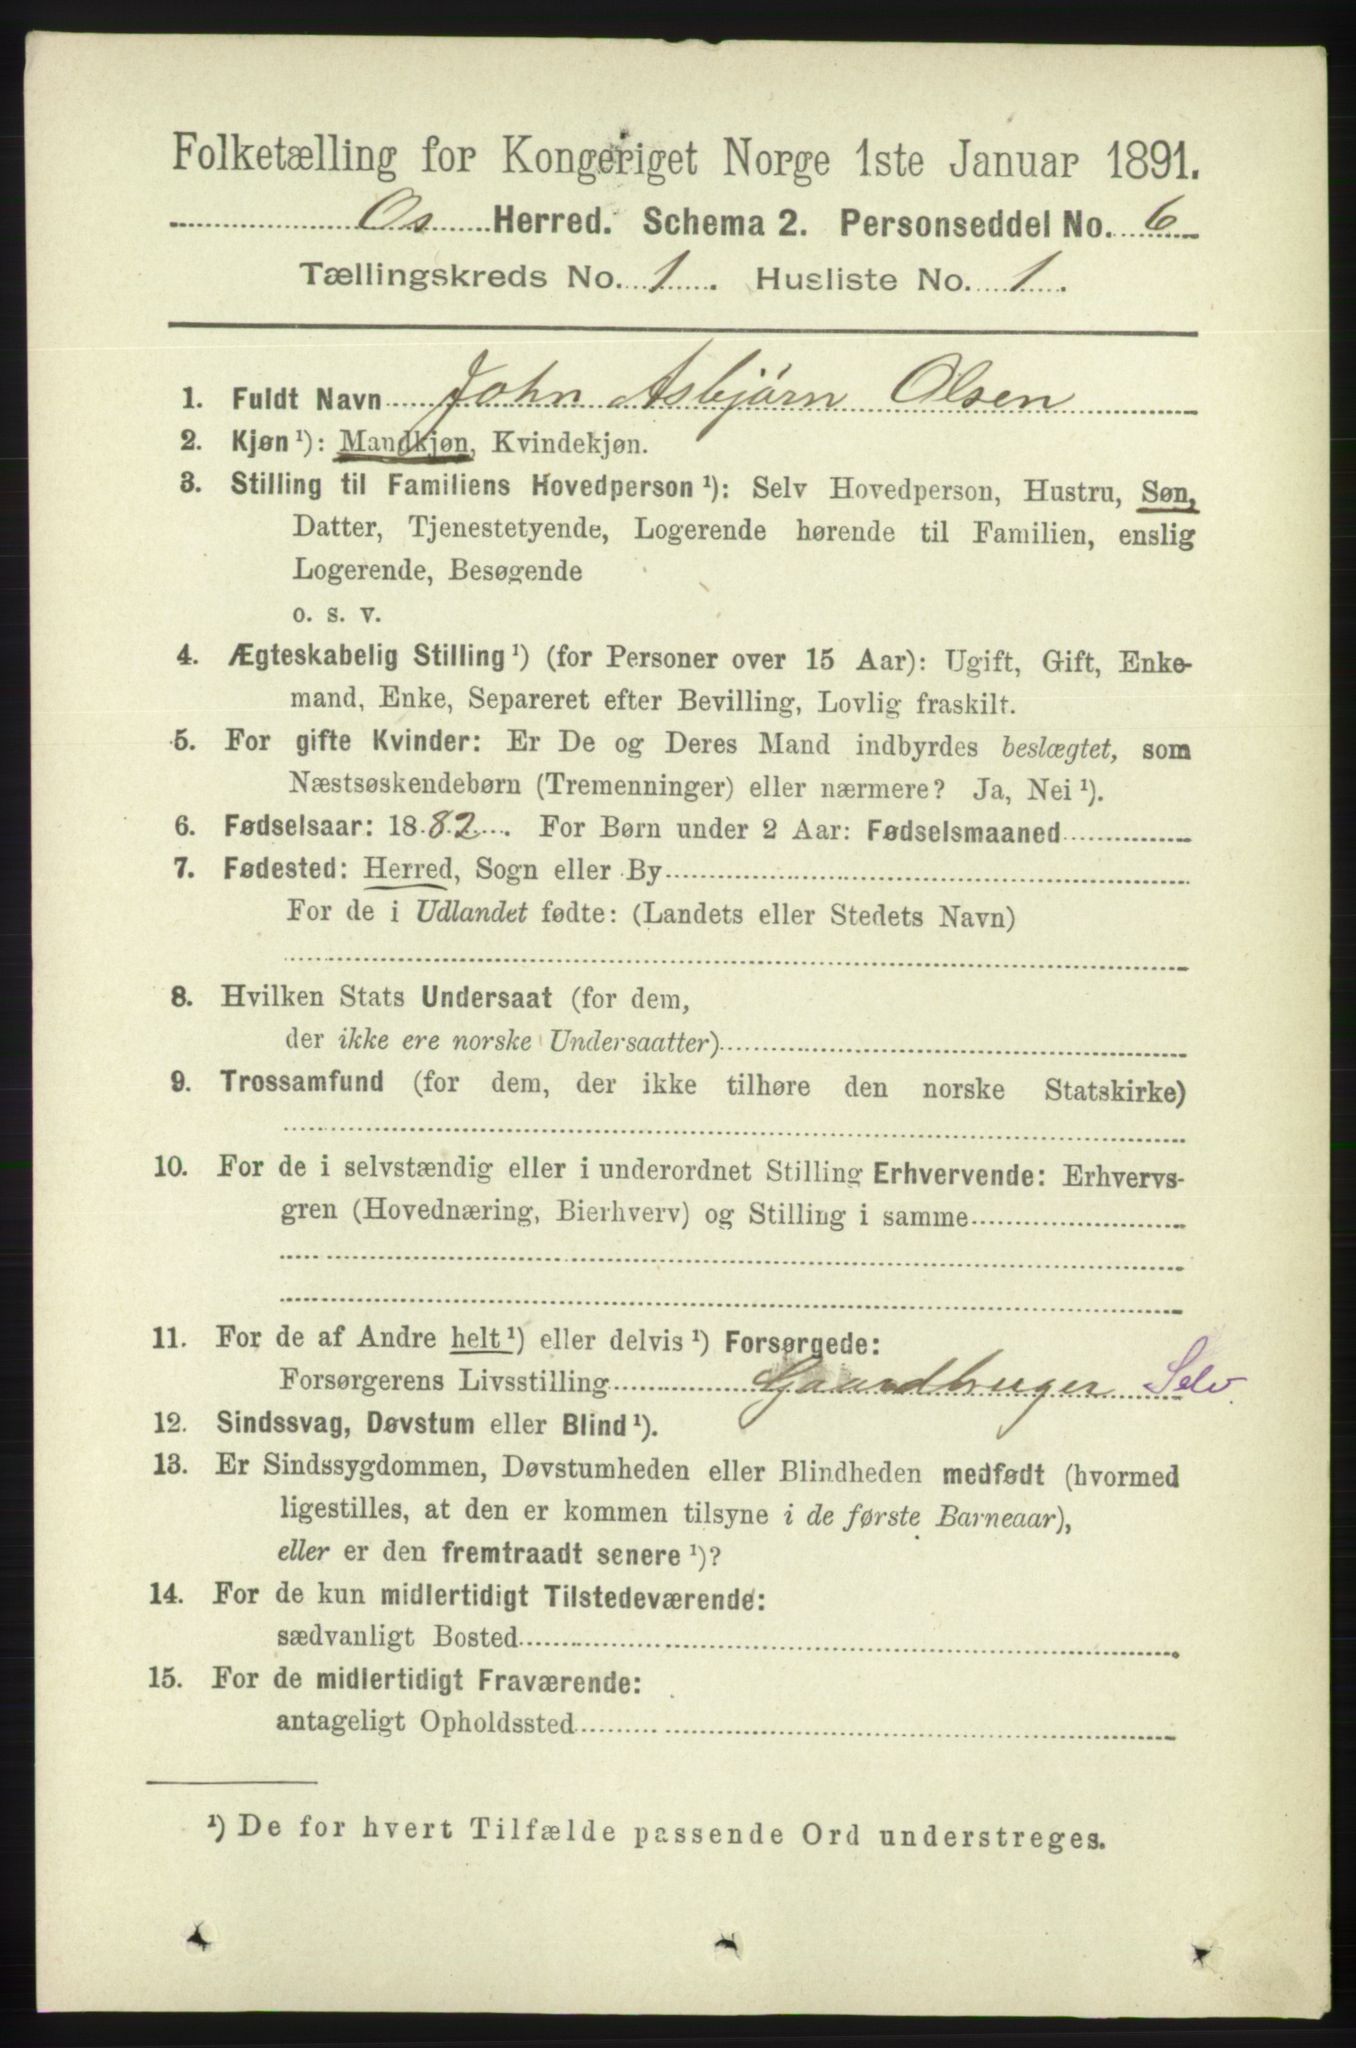 Folketælling for Kongeriget Norge 1ste Januar 1891.
Os Herred. Schema 2. Personseddel No. 6
Tællingskreds No. 1. Husliste No. 1.
1. Fuldt Navn John Asbjørn Olsen
2. Kjøn¹): Mandkjøn, Kvindekjøn.
3. Stilling til Familiens Hovedperson¹): Selv Hovedperson, Hustru, Søn,
Datter, Tjenestetyende, Logerende hørende til Familien, enslig
Logerende, Besøgende
o. s. v.
4. Ægteskabelig Stilling¹) (for Personer over 15 Aar): Ugift, Gift, Enke-
mand, Enke, Separeret efter Bevilling, Lovlig fraskilt.
5. For gifte Kvinder: Er De og Deres Mand indbyrdes beslægtet, som
Næstsøskendebørn (Tremenninger) eller nærmere? Ja, Nei¹).
6. Fødselsaar: 1882. For Børn under 2 Aar: Fødselsmaaned
7. Fødested: Herred, Sogn eller By
For de i Udlandet fødte: (Landets eller Stedets Navn)
8. Hvilken Stats Undersaat (for dem,
der ikke ere norske Undersaatter)
9. Trossamfund (for dem, der ikke tilhøre den norske Statskirke)
10. For de i selvstændig eller i underordnet Stilling Erhvervende: Erhvervs-
gren (Hovednæring, Bierhverv) og Stilling i samme
11. For de af Andre helt¹) eller delvis¹) Forsørgede:
Forsørgerens Livsstilling Gaardbruger Selv.
12. Sindssvag, Døvstum eller Blind¹).
13. Er Sindssygdommen, Døvstumheden eller Blindheden medfødt (hvormed
ligestilles, at den er kommen tilsyne i de første Barneaar),
eller er den fremtraadt senere¹)?
14. For de kun midlertidigt Tilstedeværende:
sædvanligt Bosted
15. For de midlertidigt Fraværende:
antageligt Opholdssted
¹) De for hvert Tilfælde passende Ord understreges.